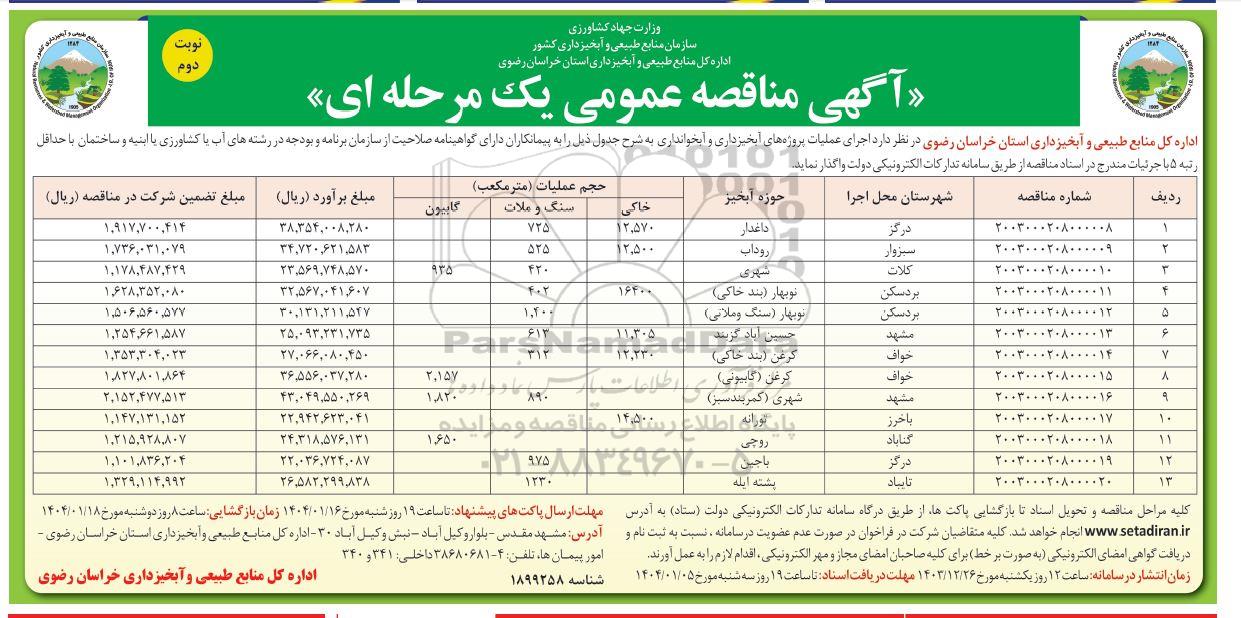 نوبت
دوم
وزارت جهاد کشاورزی
سازمان منابع طبیعی و آبخیزداری کشور
اداره کل منابع طبیعی و آبخیزداری استان خراسان رضوی
«آگهی مناقصه عمومی یک مرحله ای»
اداره کل منابع طبیعی و آبخیزداری استان خراسان رضوی در نظر دارد اجرای عملیات پروژه‌های آبخیزداری و آبخوانداری به شرح جدول ذیل را به پیمانکاران دارای گواهینامه صلاحیت از سازمان برنامه و بودجه در رشته های آب یا کشاورزی یا ابنیه و ساختمان با حداقل
رتبه ۵ با جزئیات مندرج در اسناد مناقصه از طریق سامانه تدارکات الکترونیکی دولت واگذار نماید.
ردیف شماره مناقصه شهرستان محل اجرا حوزه آبخیز حجم عملیات (مترمکعب) مبلغ برآورد (ریال) مبلغ تضمین شرکت در مناقصه (ریال)
خاکی سنگ و ملات گابیون
۱ ۲۰۰۳۰۰۰۲۰۸۰۰۰۰۰۸ درگز داغدار ۱۲,۵۷۰ ۷۲۵ ۳۸,۳۵۴,۰۰۸,۲۸۰ ۱,۹۱۷,۷۰۰,۴۱۴
۲ ۲۰۰۳۰۰۰۲۰۸۰۰۰۰۰۹ سبزوار روداب ۱۲,۵۰۰ ۵۲۵ ۳۴,۷۲۰,۶۲۱,۵۸۳ ۱,۷۳۶,۰۳۱,۰۷۹
۳ ۲۰۰۳۰۰۰۲۰۸۰۰۰۰۱۰ کلات شهری ۴۲۰ ۹۳۵ ۲۳,۵۶۹,۷۴۸,۵۷۰ ۱,۱۷۸,۴۸۷,۴۲۹
۴ ۲۰۰۳۰۰۰۲۰۸۰۰۰۰۱۱ بردسکن نوبهار (بند خاکی) ۱۶۴۰۰ ۴۰۲ ۳۲,۵۶۷,۰۴۱,۶۰۷ ۱,۶۲۸,۳۵۲,۰۸۰
۵ ۲۰۰۳۰۰۰۲۰۸۰۰۰۰۱۲ بردسکن نوبهار (سنگ وملاتی) ۱,۴۰۰ ۳۰,۱۳۱,۲۱۱,۵۴۷ ۱,۵۰۶,۵۶۰,۵۷۷
۶ ۲۰۰۳۰۰۰۲۰۸۰۰۰۰۱۳ مشهد حسین آباد گزبند ۱۱,۳۰۵ ۶۱۳ ۲۵,۰۹۳,۲۳۱,۷۳۵ ۱,۲۵۴,۶۶۱,۵۸۷
۷ ۲۰۰۳۰۰۰۲۰۸۰۰۰۰۱۴ خواف کرغن (بند خاکی) ۱۲,۲۳۰ ۳۱۲ ۲۷,۰۶۶,۰۸۰,۴۵۰ ۱,۳۵۳,۳۰۴,۰۲۳
۸ ۲۰۰۳۰۰۰۲۰۸۰۰۰۰۱۵ خواف کرغن (گابیونی) ۲,۱۵۷ ۳۶,۵۵۶,۰۳۷,۲۸۰ ۱,۸۲۷,۸۰۱,۸۶۴
۹ ۲۰۰۳۰۰۰۲۰۸۰۰۰۰۱۶ مشهد شهری (کمربندسبز) ۸۹۰ ۱,۸۲۰ ۴۳,۰۴۹,۵۵۰,۲۶۹ ۲,۱۵۲,۴۷۷,۵۱۳
۱۰ ۲۰۰۳۰۰۰۲۰۸۰۰۰۰۱۷ باخرز تورانه ۱۴,۵۰۰ ۲۲,۹۴۲,۶۲۳,۰۴۱ ۱,۱۴۷,۱۳۱,۱۵۲
۱۱ ۲۰۰۳۰۰۰۲۰۸۰۰۰۰۱۸ گناباد روچی ۱,۶۵۰ ۲۴,۳۱۸,۵۷۶,۱۳۱ ۱,۲۱۵,۹۲۸,۸۰۷
۱۲ ۲۰۰۳۰۰۰۲۰۸۰۰۰۰۱۹ درگز باجین ۹۷۵ ۲۲,۰۳۶,۷۲۴,۰۸۷ ۱,۱۰۱,۸۳۶,۲۰۴
۱۳ ۲۰۰۳۰۰۰۲۰۸۰۰۰۰۲۰ تایباد پشته ایله ۱۲۳۰ ۲۶,۵۸۲,۲۹۹,۸۳۸ ۱,۳۲۹,۱۱۴,۹۹۲
ParsNamadData
پایگاه اطلاع رسانی مناقصه و مزایده
۰۲۱-۸۸۳۴۹۶۷۰-۵
کلیه مراحل مناقصه و تحویل اسناد تا بازگشایی پاکت ها، از طریق درگاه سامانه تدارکات الکترونیکی دولت (ستاد) به آدرس
www.setadiran.ir انجام خواهد شد. کلیه متقاضیان شرکت در فراخوان در صورت عدم عضویت در سامانه ، نسبت به ثبت نام و
دریافت گواهی امضای الکترونیکی (به صورت بر خط) برای کلیه صاحبان امضای مجاز و مهر الکترونیکی ، اقدام لازم را به عمل آورند.
زمان انتشار در سامانه: ساعت ۱۲ روز یکشنبه مورخ ۱۴۰۳/۱۲/۲۶ مهلت دریافت اسناد: تا ساعت ۱۹ روز سه شنبه مورخ ۱۴۰۴/۰۱/۰۵
مهلت ارسال پاکت های پیشنهاد: تا ساعت ۱۹ روز شنبه مورخ ۱۴۰۴/۰۱/۱۶ زمان بازگشایی: ساعت ۸ روز دوشنبه مورخ ۱۴۰۴/۰۱/۱۸
آدرس: مشهد مقدس - بلوار وکیل آباد – نبش وکیل آباد ۳۰- اداره کل منابع طبیعی وآبخیزداری استان خراسان رضوی -
امور پیمان ها، تلفن: ۴-۳۸۶۸۰۶۸۱ داخلی: ۳۴۱ و ۳۴۰
شناسه ۱۸۹۹۲۵۸
اداره کل منابع طبیعی وآبخیزداری خراسان رضوی